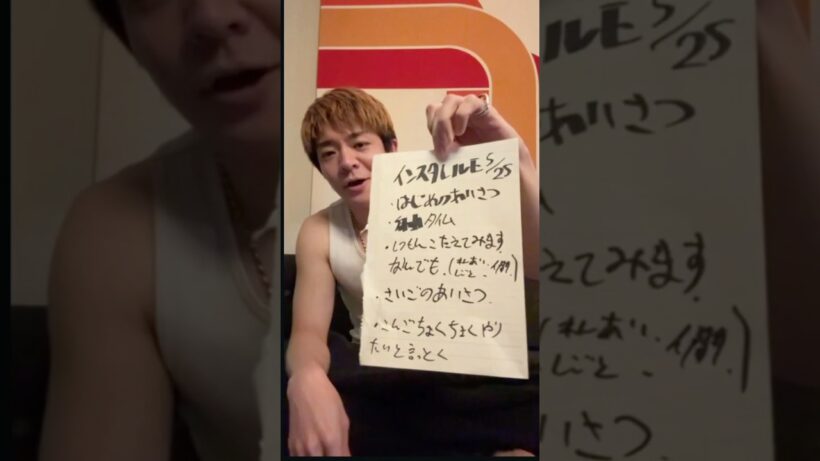 インスタルE 5/25
・はじめのあいさつ
タイム
・しつもんこたえてみます
なんでも。(れんあい、
しごと、
・さいごのあいさつ
・こんごちょくちょくやり
たいと言っとく